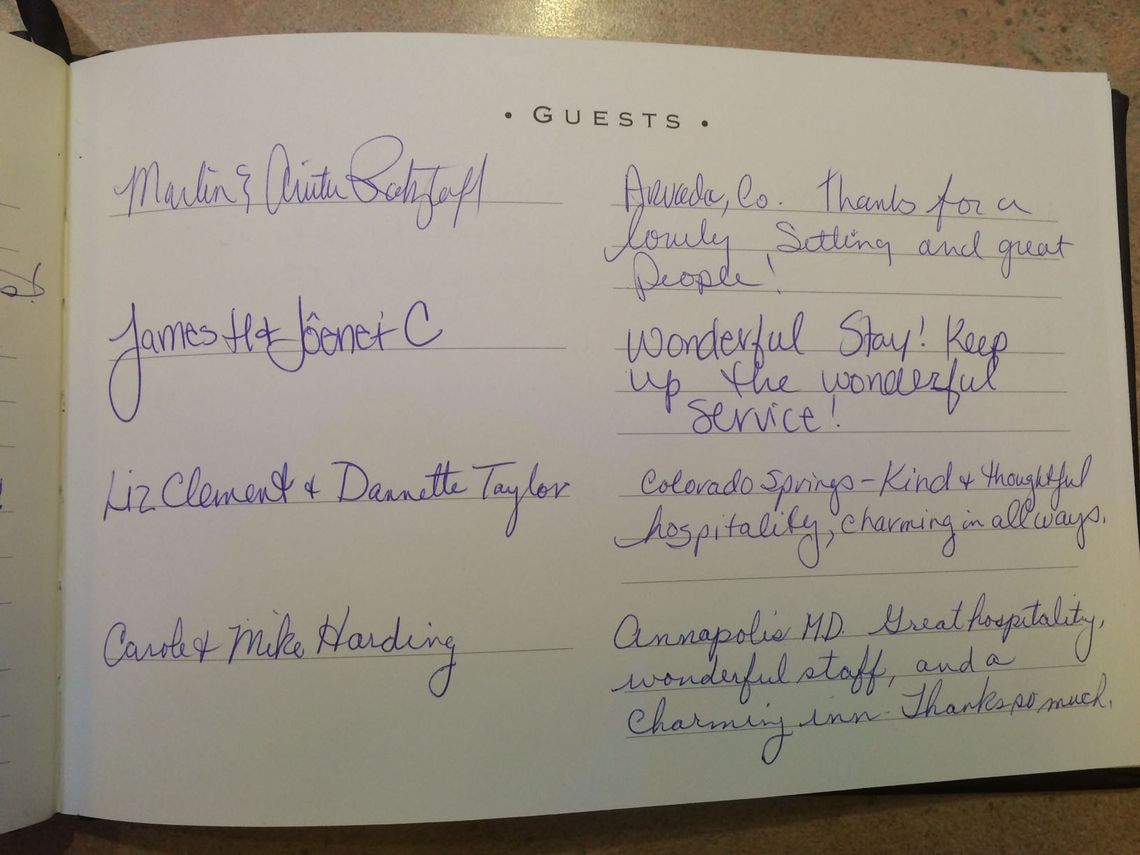 • GUESTS •
Marlin &
Arvada, Co. Thanks for a
lovely Setting and great
People!
James H &  C
Wonderful Stay! Keep
up the wonderful
service!
Liz Clement & Dannette Taylor
Colorado Springs - Kind & thoughtful
hospitality, charming in all ways.
Carole & Mike Harding
Annapolis MD. Great hospitality,
wonderful staff, and a
charming inn. Thanks so much.